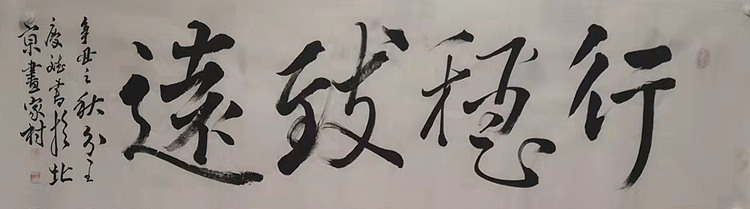 行穩致遠
辛丑之秋王
書於北
京畫家村